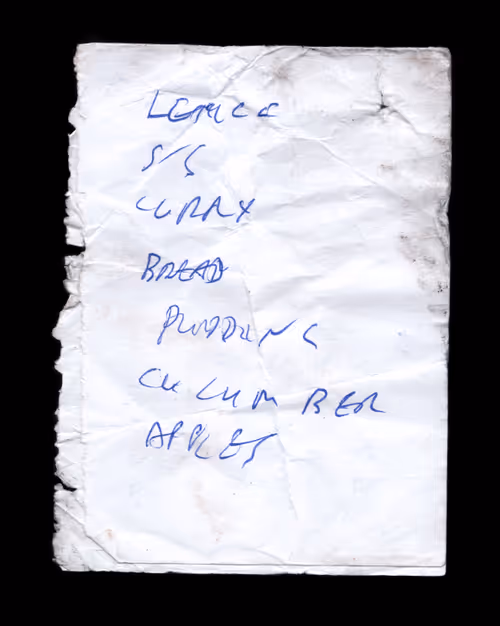 S/S
CURRY
BREAD
PUDDING
CUCUMBER
APPLES